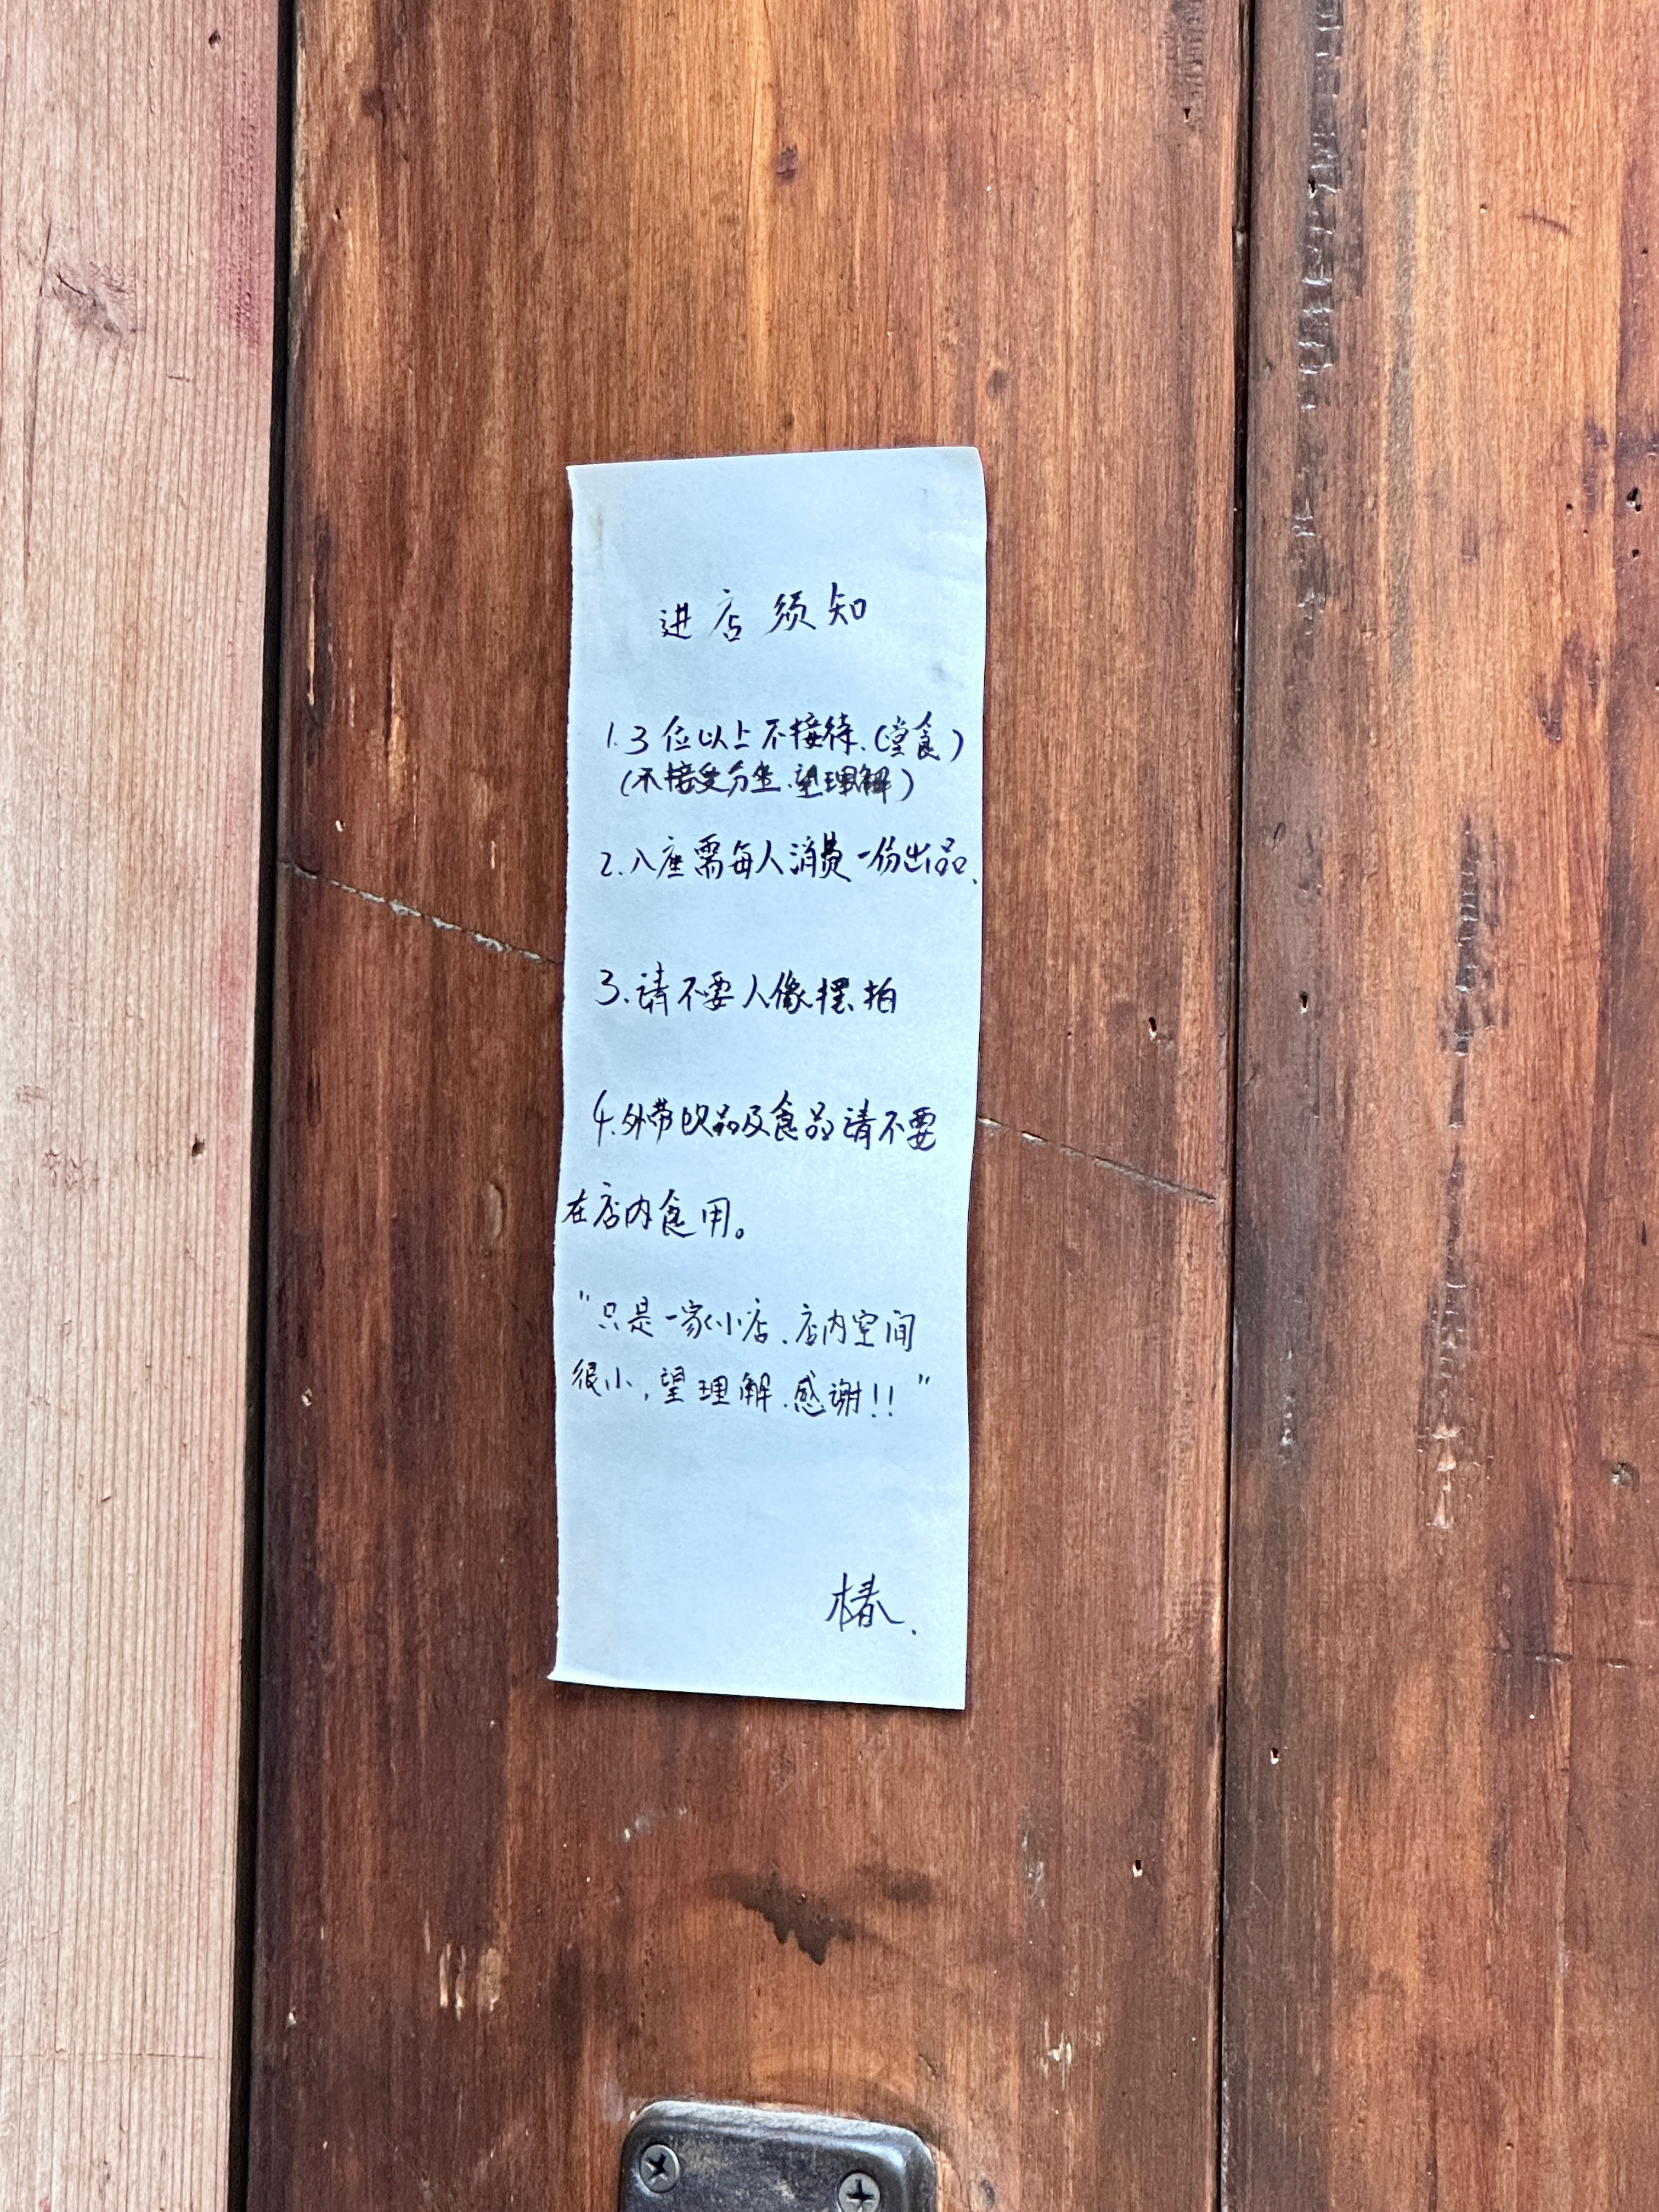 进店须知
1.3位以上不接待.(堂食)
(不接受分坐.望理解)
2.入座需每人消费一份出品.
3.请不要人像摆拍
4.外带饮品及食品请不要
在店内食用。
"只是一家小店.店内空间
很小,望理解.感谢!!"
椿.